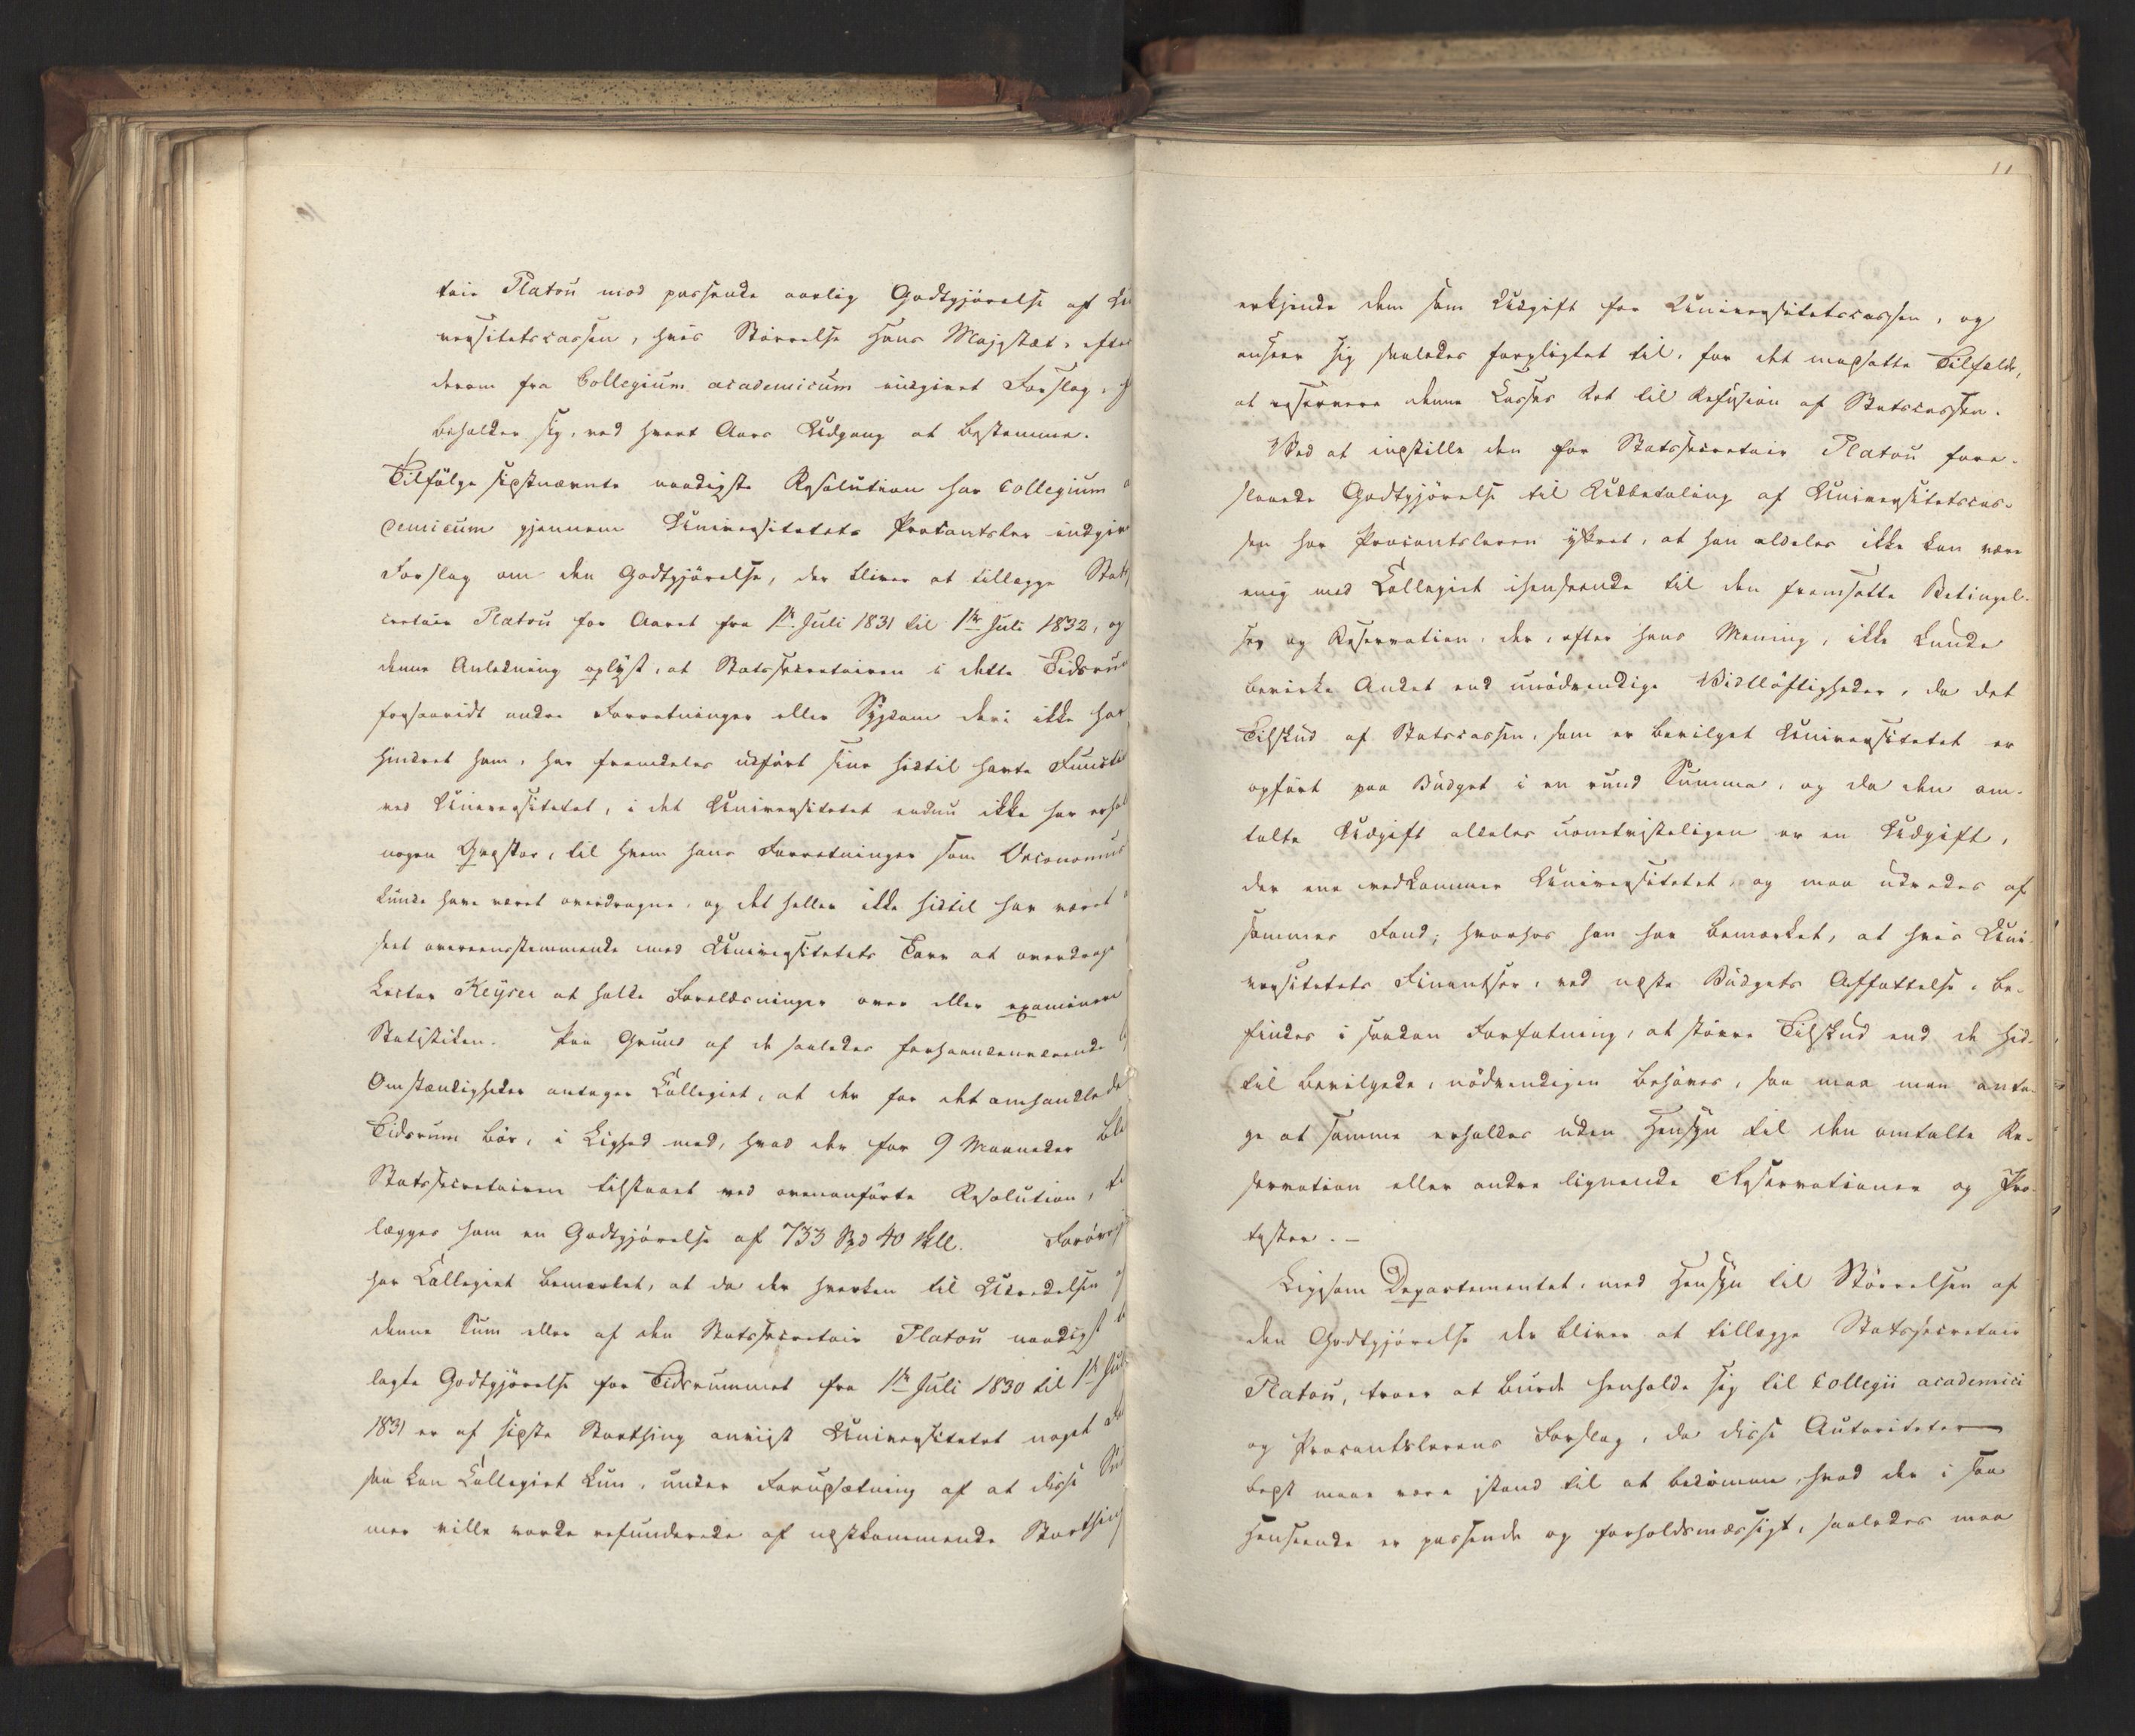 tair Platou mod passende aarlig Godtgjörelse af Un
versitetscassen, hvis Störrelse Hans Majestæt, efter
derom fra Collegium academicum indgivet Forslag, f
beholder sig, ved hvert Aars Udgang at bestemme.
Tilfölge sidstnævnte naadigste Resolution har Collegium a
cemicum gjennem Universitetets Procantsler indgiv
Forslag om den Godtgjörelse, der bliver at tillægge Stats
cretair Platou for Aaret fra 1ste Juli 1831 til 1ste Juli 1832, og
denne Anledning oplyst, at Statssecretairen i dette Tidsrum
forsaavidt andre Forretninger eller Sygdom deri ikke har
hindret ham, har fremdeles udfört sine hidtil havte Functi
ved Universitetet, i det Universitetet endnu ikke har erhol
nogen Qvæstor, til hvem hans Forretninger som Oeconomus
kunde have været overdragne, og det heller ikke hidtil har været a
seet overeensstemmende med Universitetets Tarv at overdrage
Lector Keyser at holde Forelæsninger over eller examinere
Statistiken. Paa Grund af de saaledes forhaandenværende
Omstændigheder antager Collegiet, at der for det omhandlede
Tidsrum bör, i Lighed med, hvad der for 9 Maaneder ble
Statssecretairen tilstaaet ved ovenanförte Resolution, ti
lægges ham en Godtgjörelse af 733 Spd 40 skll. Forövrigt
har Collegiet bemærket, at da der hverken til Udredelsen af
denne Sum eller af den Statssecretair Platou naadigst ti
lagte Godtgjörelse for Tidsrummet fra 1ste Juli 1830 til 1ste Juli
1831 er af sidste Storthing anviist Universitetet noget
saa kan Collegiet kun, under Forudsætning af at disse Sum
mer ville vorde refunderede af næstkommende Storthing
11
erkjende dem som Udgift for Universitetscassen, og
anseer sig saaledes forpligtet til, for det modsatte Tilfælde,
at reservere denne Casses Ret til Refusion af Statscassen.
Ved at indstille den for Statssecretair Platou fore-
slaaede Godtgjörelse til Udbetaling af Universitetscas-
sen har Procantsleren yttret, at han aldeles ikke kan være
enig med Collegiet ihenseende til den fremsatte Betingel-
se og Reservation, der, efter hans Mening, ikke kunde
bevirke Andet end unödvendige Vidtlöftigheder, da det
Tilskud af Statscassen, som er bevilget Universitetet er
opfört paa Budget i en rund Summa, og da den om-
talte Udgift aldeles uomtvisteligen er en Udgift,
der ene vedkommer Universitetet, og maa udredes af
sammes Fond; hvorhos han har bemærket, at hvis Uni-
versitetets Finantser, ved næste Budgets Affattelse, be-
findes i saadan Forfatning, at större Tilskud end de hid-
til bevilgede, nödvendigen behöves, saa maa man anta-
ge at samme erholdes uden Hensyn til den omtalte Re-
servation eller andre lignende Reservationer og Pro-
tester. –
Ligesom Departementet, med Hensyn til Störrelsen af
den Godtgjörelse der bliver at tillægge Statssecretair
Platou, troer at burde henholde sig til Collegii academici
og Procantslerens Forslag, da disse Autoriteter
bedst maae være istand til at bedömme, hvad der i saa
Henseende er passende og forholdsmæssigt, saaledes maa